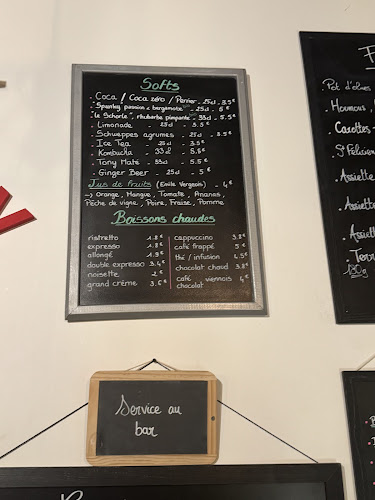 Softs
. Coca / Coca zéro / Perrier - 25cl - 3.5€
. Sparkling passion & bergamote - 25cl - 5€
. "le Schorle", rhubarbe pimpante - 33cl - 5.5€
. Limonade 25cl - 3.5€
. Schweppes agrumes - 25cl - 3.5€
. Ice Tea - 25cl - 3.5€
. Kombucha - 33cl - 5.5€
. Tony Maté - 33cl - 5.5€
. Ginger Beer - 25cl - 5€
Jus de fruits (Emile Vergeois) - 4€
→ Orange, Mangue, Tomate, Ananas,
Pêche de vigne, Poire, Fraise, Pomme
Boissons chaudes
ristretto 1.8€
expresso 1.8€
allongé 1.9€
double expresso 3.4€
noisette 2€
grand crème 3.6€
cappuccino 3.8€
café frappé 5€
thé / infusion 4.5€
chocolat chaud 3.8€
café viennois 4€
chocolat
Pot d'olives
Houmous,
Carottes
Assiette
Assiette
Assiette
130g
Service au
bar